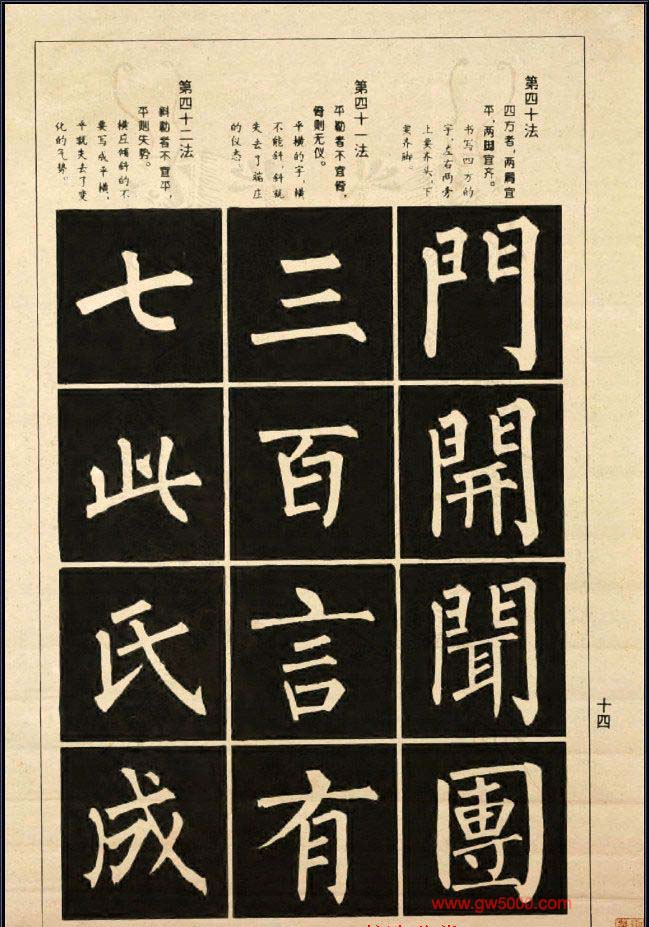 第四十法
四方者，两肩宜
平，两脚宜齐。
书写四方的
字，左右两旁
上要齐头，下
要齐脚。
門
開
聞
團
第四十一法
平勒者不宜骨，
骨则无仪。
平横的字，横
不能斜，斜就
失去了端庄
的仪态。
三
百
言
有
第四十二法
斜勒者不宜平，
平则失势。
横应倾斜的不
要写成平横，
平就失去了变
化的气势。
七
此
氏
成
十四
www.gw5000.com